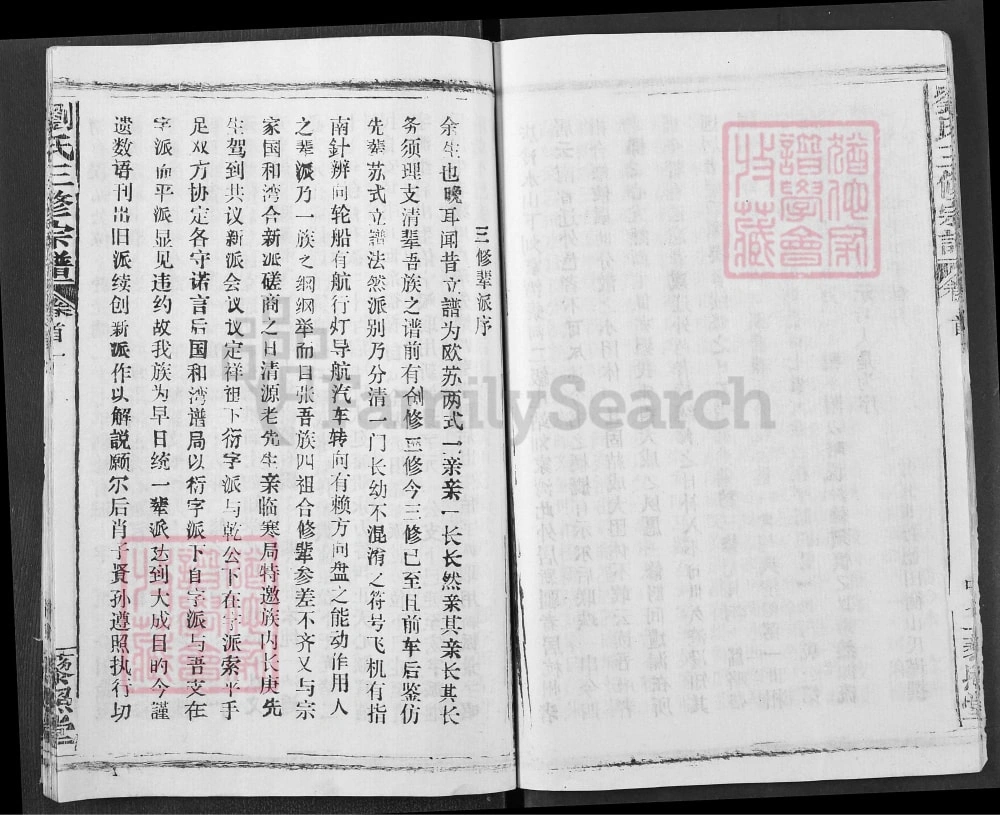 三修辈派序
余生也晚耳闻昔立譜为欧苏两式一亲亲一长长然亲其亲长其长
务须理支清辈吾族之谱前有创修㱏修今三修已至且前车后鉴仿
先辈苏式立譜法然派别乃分清一门长幼不混淆之符号飞机有指
南針辨向轮船有航行灯导航汽车转向有赖方向盘之能动作用人
之辈派乃一族之纲纲举而目张吾族四祖合修辈参差不齐又与宗
家国和湾合新派磋商之日清源老先生亲临寒局特邀族内长庚先
生驾到共议新派会议议定祥祖下衍字派与乾公下在字派索平手
足双方协定各守诺言后国和湾谱局以衍字派下自字派与吾支在
字派而平派显见违约故我族为早日统一辈派达到大成目的今謹
遗数语刊出旧派续创新派作以解説愿尔后肖子贤孙遵照执行切
劉氏三修宗譜
卷首一
藜照堂
FamilySearch
猶他家譜學會收藏
猶他家譜學會收藏